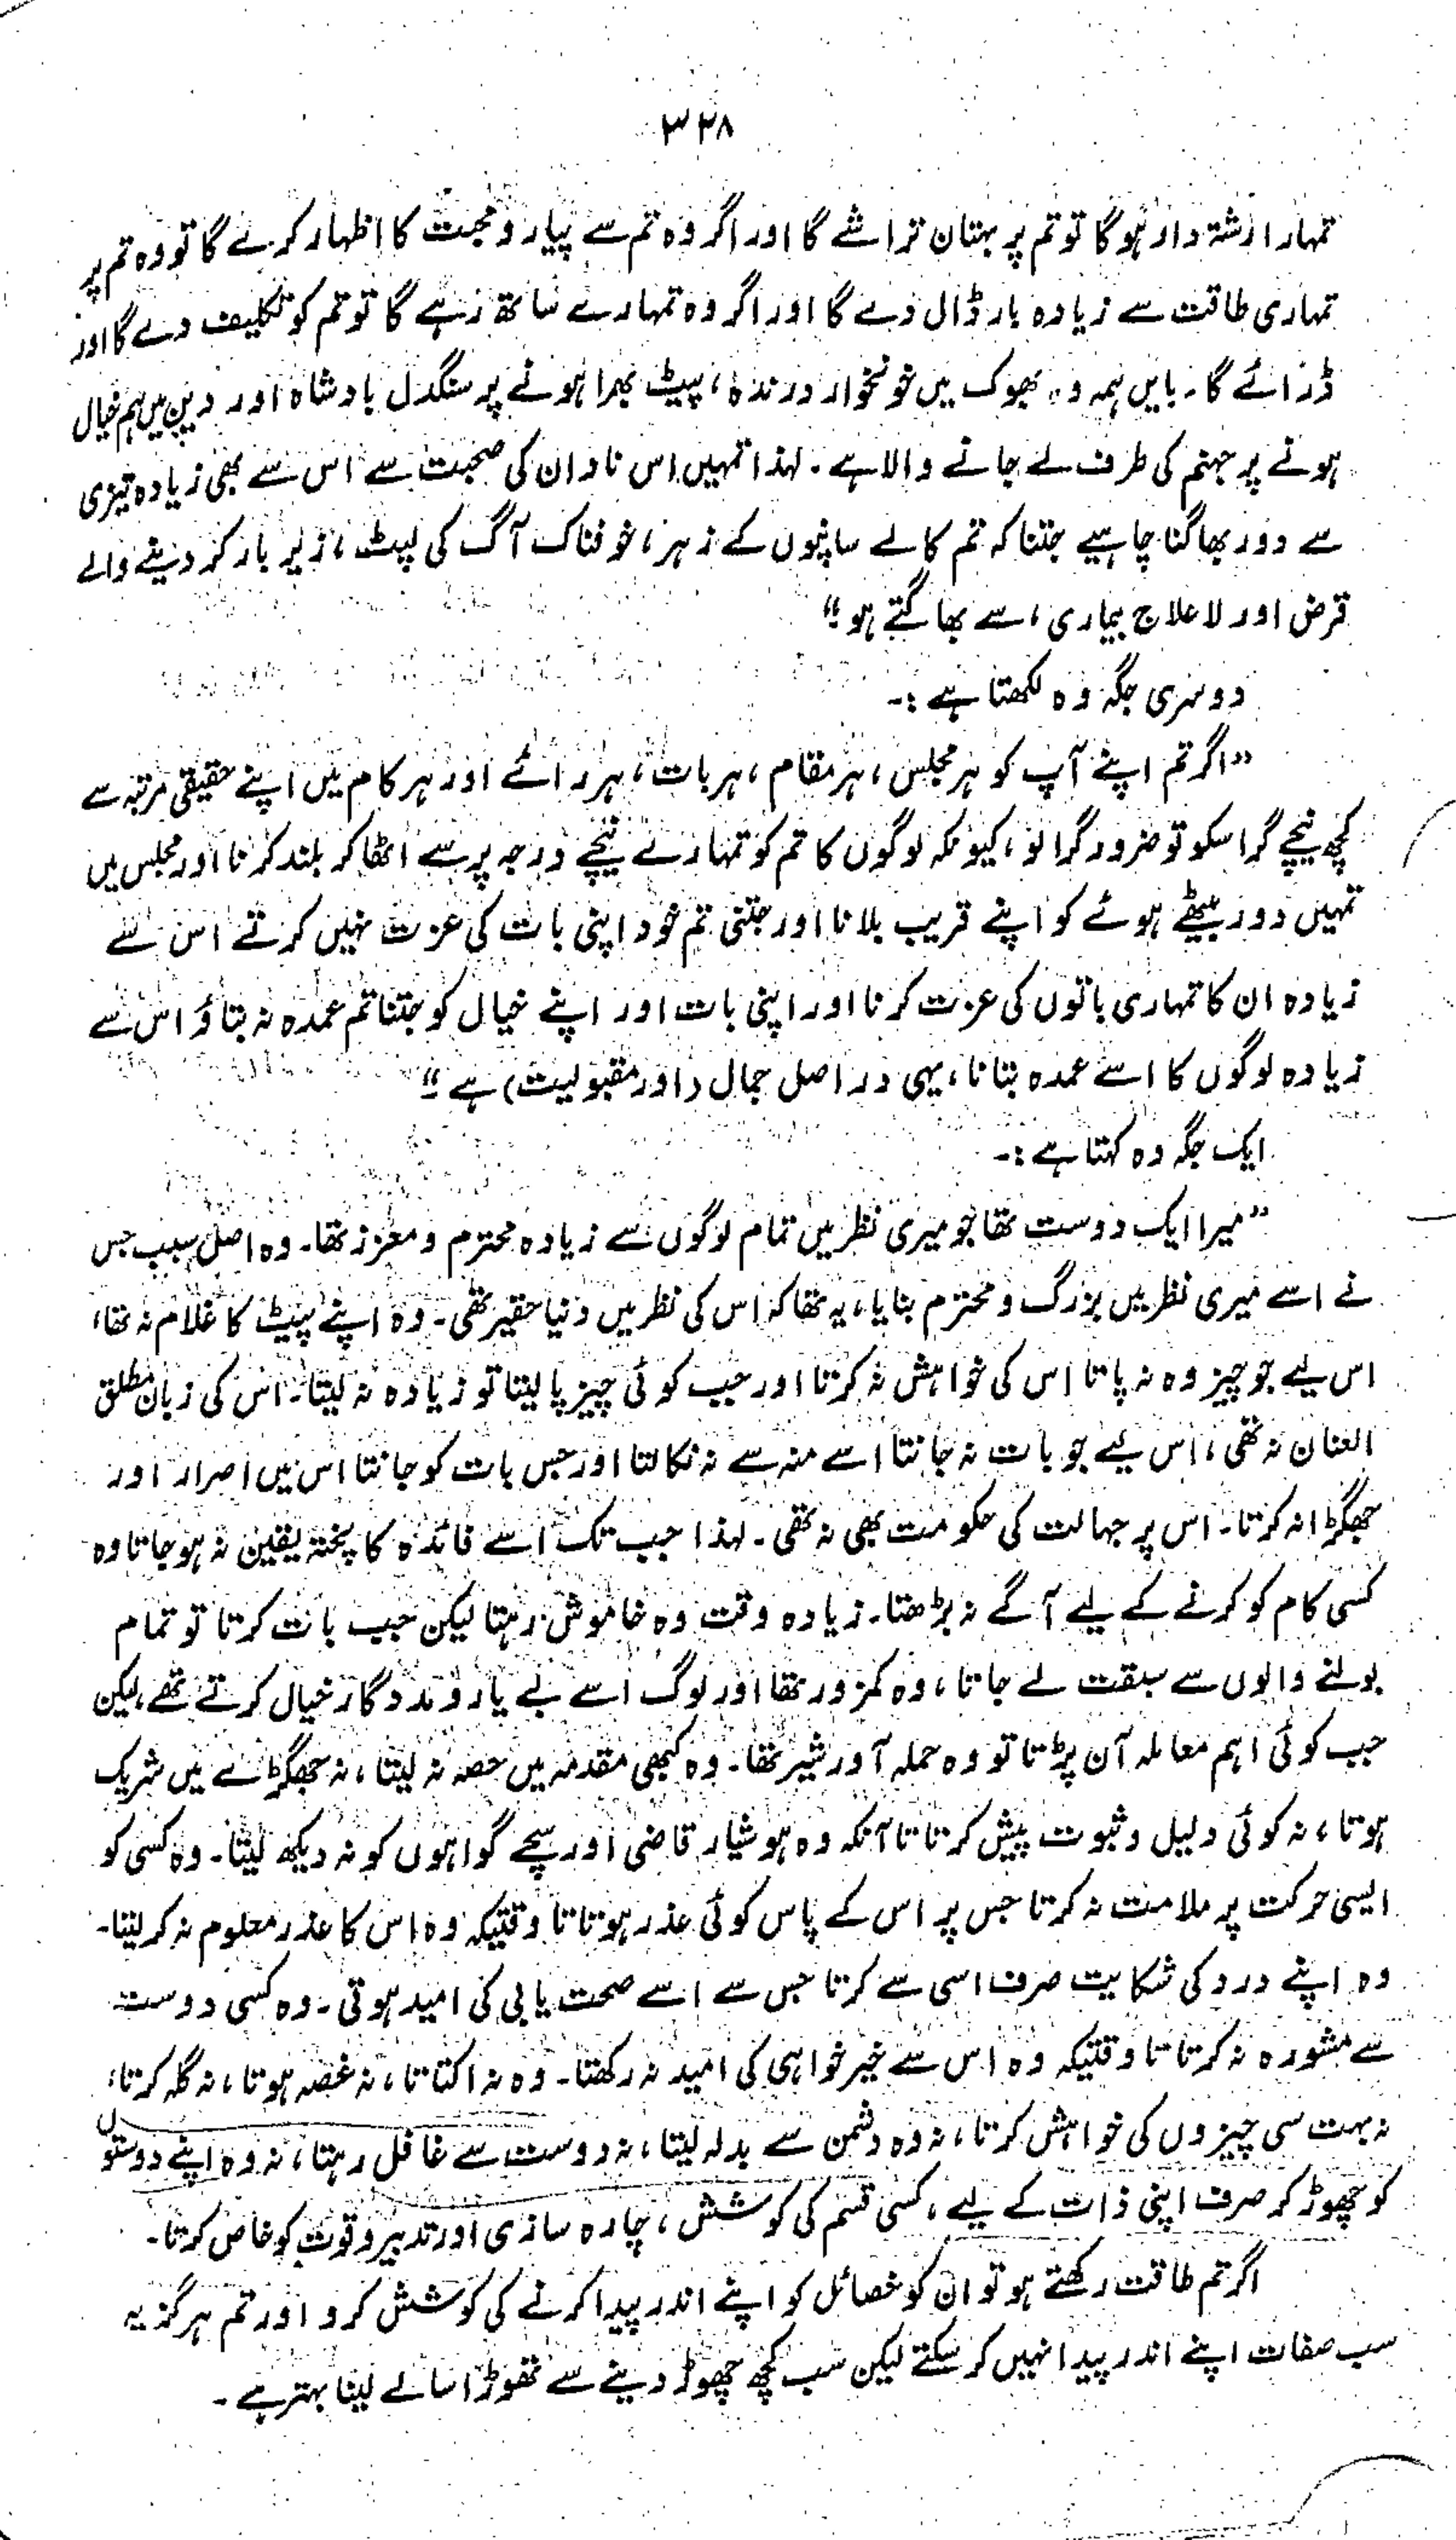 ۳۲۸
تمہارا رشتہ دار ہوگا تو تم پر بہتان تراشے گا اور اگر وہ تم سے پیار و محبت کا اظہار کرے گا تو وہ تم پر
تمہاری طاقت سے زیادہ بار ڈال دے گا اور اگر وہ تمہارے ساتھ رہے گا تو تم کو تکلیف دے گا اور
ڈرائے گا۔ بایں ہمہ وہ بھوک میں خونخوار درندہ، پیٹ بھرا ہونے پر سنگدل بادشاہ اور دین میں ہم خیال
ہونے پر جہنم کی طرف لے جانے والا ہے۔ لہذا تمہیں اس نادان کی صحبت سے اس سے بھی زیادہ تیزی
سے دور بھاگنا چاہیے جتنا کہ تم کالے سانپوں کے زہر، خوفناک آگ کی لپٹ، زیر بار کر دینے والے
قرض اور لاعلاج بیماری، سے بھاگتے ہو"
دوسری جگہ وہ لکھتا ہے :-
"اگر تم اپنے آپ کو ہر مجلس، ہر مقام، ہر بات، ہر رائے اور ہر کام میں اپنے حقیقی مرتبہ سے
کچھ نیچے گرا سکو تو ضرور گرا لو، کیونکہ لوگوں کا تم کو تمہارے نیچے درجہ پر سے اٹھا کر بلند کرنا اور مجلس میں
تمہیں دور بیٹھے ہوئے کو اپنے قریب بلانا اور جتنی تم خود اپنی بات کی عزت نہیں کرتے اس سے
زیادہ ان کا تمہاری باتوں کی عزت کرنا اور اپنی بات اور اپنے خیال کو جتنا تم عمدہ نہ بتاؤ اس سے
زیادہ لوگوں کا اسے عمدہ بتانا، یہی در اصل جمال (اور مقبولیت) ہے"
ایک جگہ وہ کہتا ہے :-
"میرا ایک دوست تھا جو میری نظر میں تمام لوگوں سے زیادہ محترم و معزز تھا۔ وہ اصل سبب جس
نے اسے میری نظر میں بزرگ و محترم بنایا، یہ تھا کہ اس کی نظر میں دنیا حقیر تھی۔ وہ اپنے پیٹ کا غلام نہ تھا،
اس لیے جو چیز وہ نہ پاتا اس کی خواہش نہ کرتا اور جب کوئی چیز پا لیتا تو زیادہ نہ لیتا۔ اس کی زبان مطلق
العنان نہ تھی، اس لیے جو بات نہ جانتا اسے منہ سے نہ نکالتا اور جس بات کو جانتا اس میں اصرار اور
جھگڑا نہ کرتا۔ اس پر جہالت کی حکومت بھی نہ تھی۔ لہذا جب تک اسے فائدہ کا پختہ یقین نہ ہو جاتا وہ
کسی کام کو کرنے کے لیے آگے نہ بڑھتا۔ زیادہ وقت وہ خاموش رہتا لیکن جب بات کرتا تو تمام
بولنے والوں سے سبقت لے جاتا، وہ کمزور تھا اور لوگ اسے بے یار و مددگار خیال کرتے تھے، لیکن
جب کوئی اہم معاملہ آن پڑتا تو وہ حملہ آور شیر تھا۔ وہ کبھی مقدمہ میں حصہ نہ لیتا، نہ جھگڑے میں شریک
ہوتا، نہ کوئی دلیل و ثبوت پیش کرتا تا آنکہ وہ ہوشیار قاضی اور سچے گواہوں کو نہ دیکھ لیتا۔ وہ کسی کو
ایسی حرکت پر ملامت نہ کرتا جس پر اس کے پاس کوئی عذر ہوتا تا وقتیکہ وہ اس کا عذر معلوم نہ کر لیتا۔
وہ اپنے درد کی شکایت صرف اسی سے کرتا جس سے اسے صحت یابی کی امید ہوتی۔ وہ کسی دوست
سے مشورہ نہ کرتا تا وقتیکہ وہ اس سے خیر خواہی کی امید نہ رکھتا۔ وہ نہ اکتاتا، نہ غصہ ہوتا، نہ گلہ کرتا،
نہ بہت سی چیزوں کی خواہش کرتا، نہ وہ دشمن سے بدلہ لیتا، نہ دوست سے غافل رہتا، نہ وہ اپنے دوستوں
کو چھوڑ کر صرف اپنی ذات کے لیے، کسی قسم کی کوشش، چارہ سازی اور تدبیر و قوت کو خاص کرتا۔
اگر تم طاقت رکھتے ہو تو ان کو خصائل کو اپنے اندر پیدا کرنے کی کوشش کرو اور تم ہرگز یہ
سب صفات اپنے اندر پیدا نہیں کر سکتے لیکن سب کچھ چھوڑ دینے سے تھوڑا سا لے لینا بہتر ہے۔